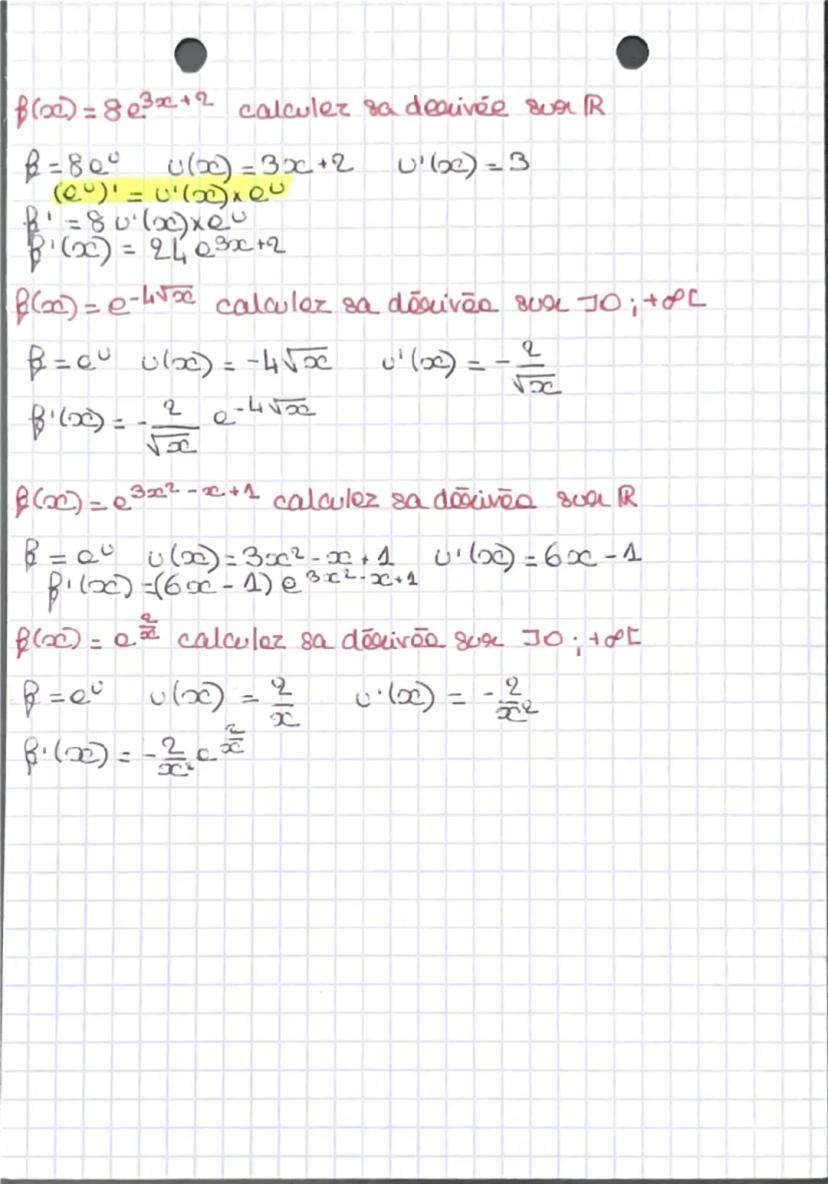 f(x) = 8e^{3x+2} calculer sa derivée sur ℝ
f = 8e^u u(x) = 3x+2 u'(x) = 3
(e^u)' = u'(x) × e^u
f' = 8 u'(x) × e^u
f'(x) = 24 e^{3x+2}
f(x) = e^{-4√x} calculer sa dérivée sur ]0 ; +∞[
f = e^u u(x) = -4√x u'(x) = -2/√x
f'(x) = -2/√x e^{-4√x}
f(x) = e^{3x²-x+1} calculer sa dérivée sur ℝ
f = e^u u(x) = 3x²-x+1 u'(x) = 6x-1
f'(x) = (6x-1) e^{3x²-x+1}
f(x) = e^{2/x} calculer sa dérivée sur ]0 ; +∞[
f = e^u u(x) = 2/x u'(x) = -2/x²
f'(x) = -2/x² e^{2/x}